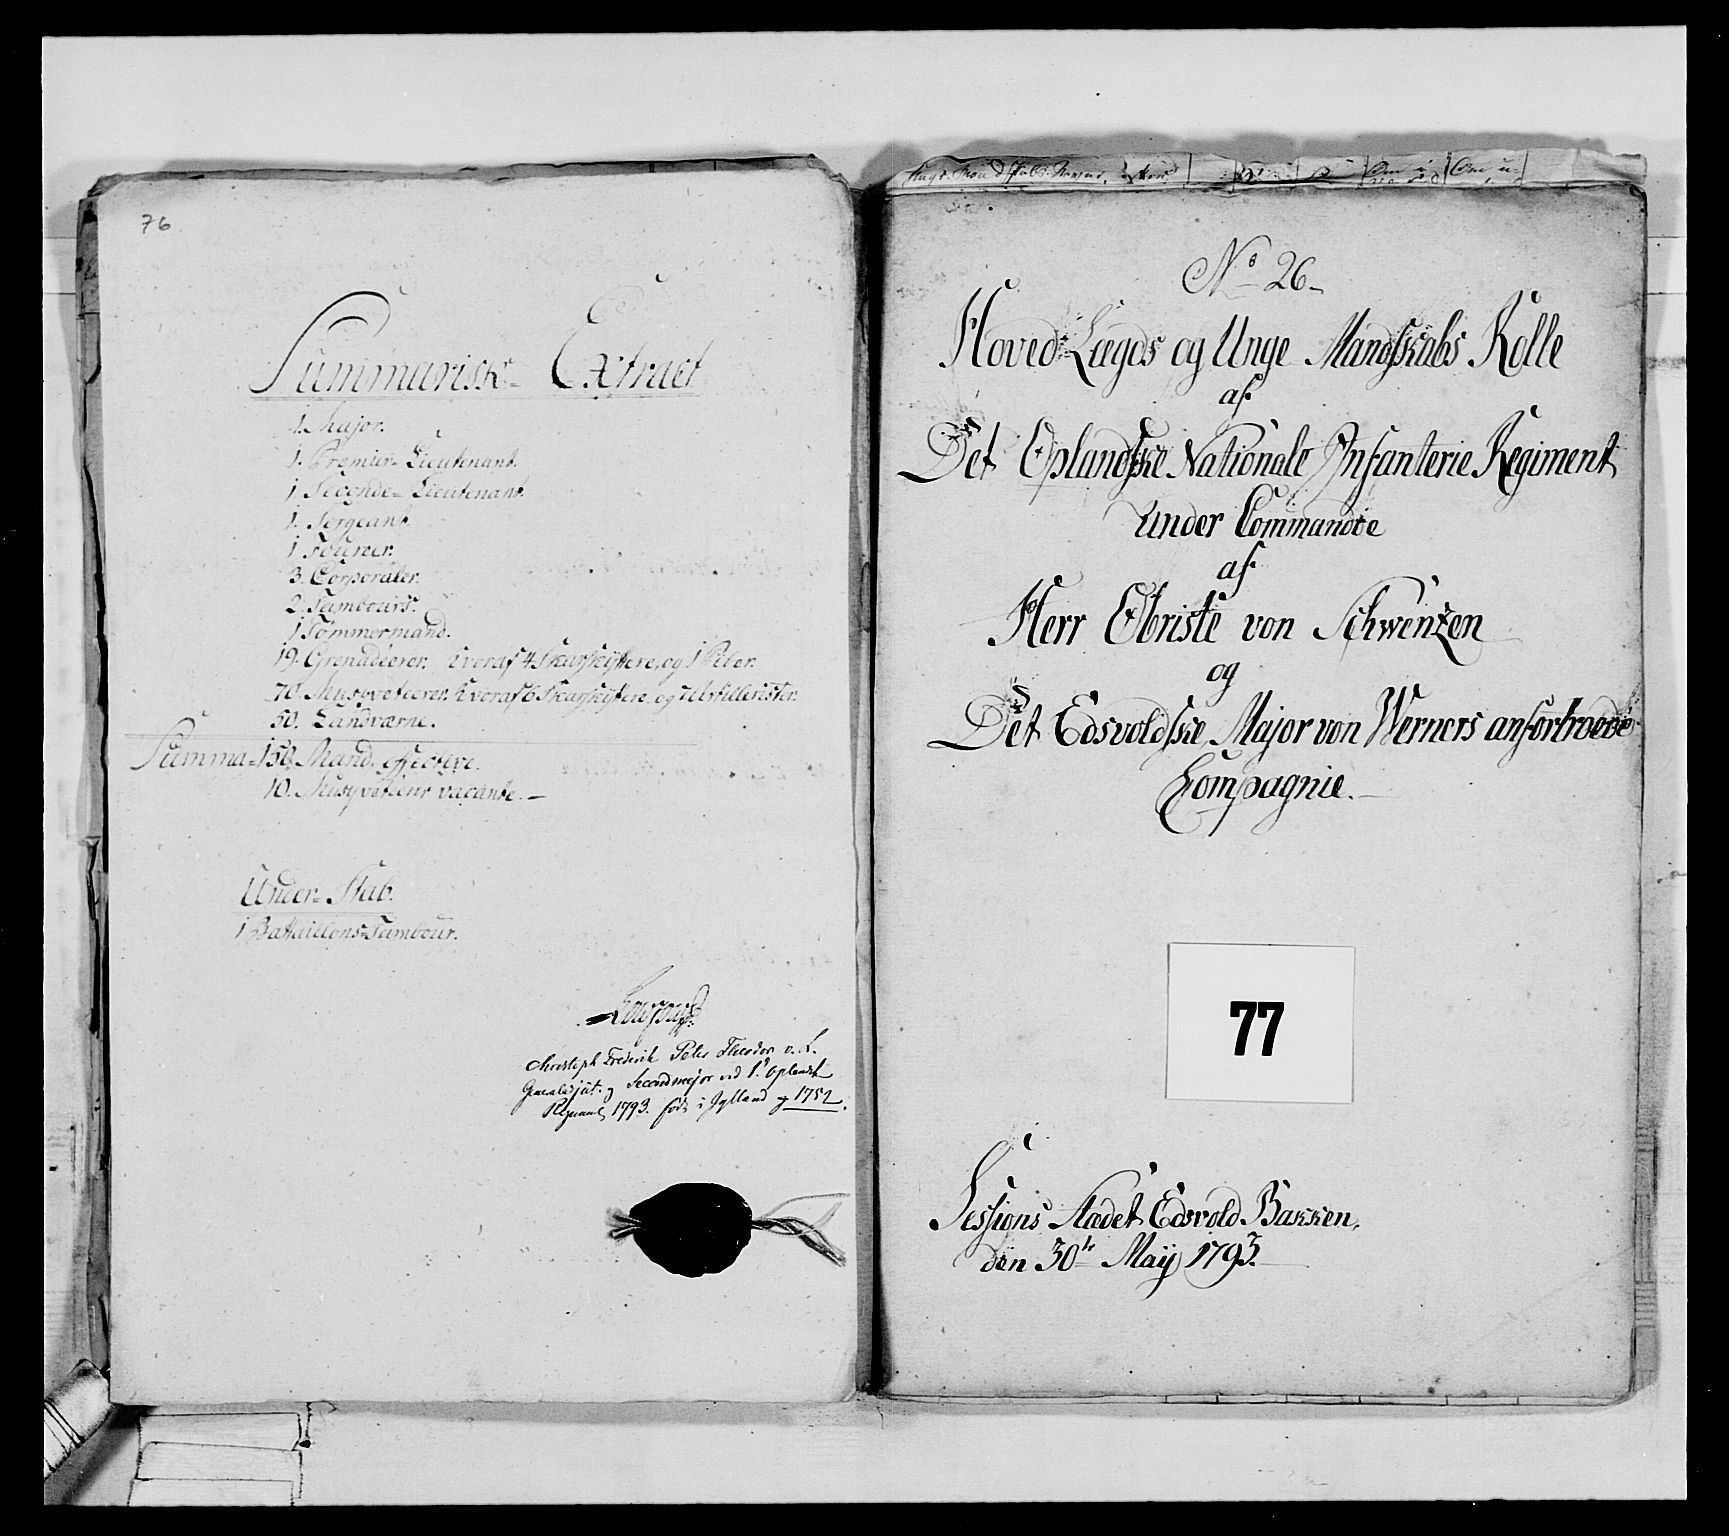 76
Summarisk Extract
1. Major.
1. Premier-Lieutenant.
1. Seconde-Lieutenant.
1. Sergeant.
1 Fourier.
3. Corporaler.
2. Tambours.
1 Tømmermand.
19. Grenadeerer. hvoraf 4 Skarskyttere, og 1 Piber.
70. Musqveteerer. hvoraf 6 Skarskyttere og 7 Artillerister.
50. Landværne.
Summa 150 Mand effective.
10. Musqveteerer vacante.
Under-Stab.
1 Bataillons-Tambour.
Christoph Frederik Peter Theodor v. L.
Generaladjut. og Secondmajor ved 1ste Oplandsk
Regiment 1793. født i Jylland 1752.
No 26
Hoved-Lægds og Unge Mandskabs Rolle
af
Det Oplandske Nationale Infanterie Regiment
under Commandoe
af
Herr Obriste von Schwenzen
og
Det Edsvoldske Major von Werners anfortroede
Compagnie.
77
Sessions Stædet Edsvold Bakken,
den 30te Maÿ 1793.